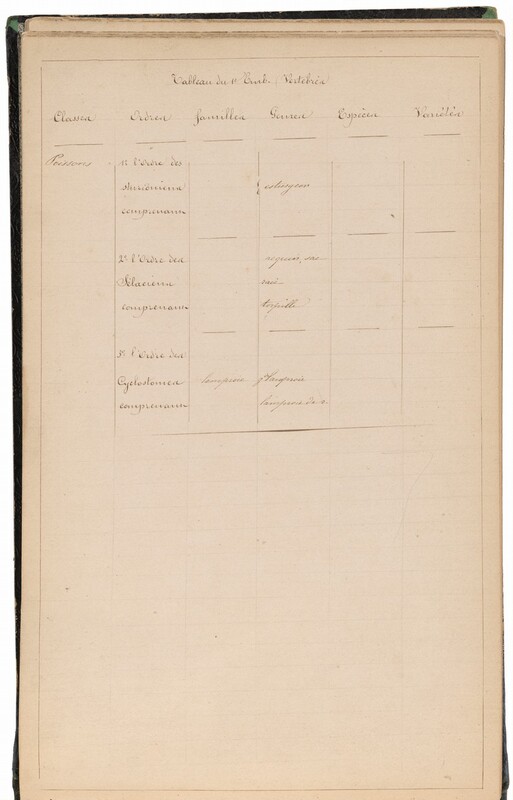 Tableau du 1er Emb. Vertébrés
Classes Ordres familles Genres Espèces Variétés
Poissons 1° l'Ordre des
sturioniens esturgeon
comprenant
2° l'Ordre des requin, sce
Sélaciens raie
comprenant torpille
3° l'Ordre des
Cyclostomes lamproie
comprenant lamproie de r